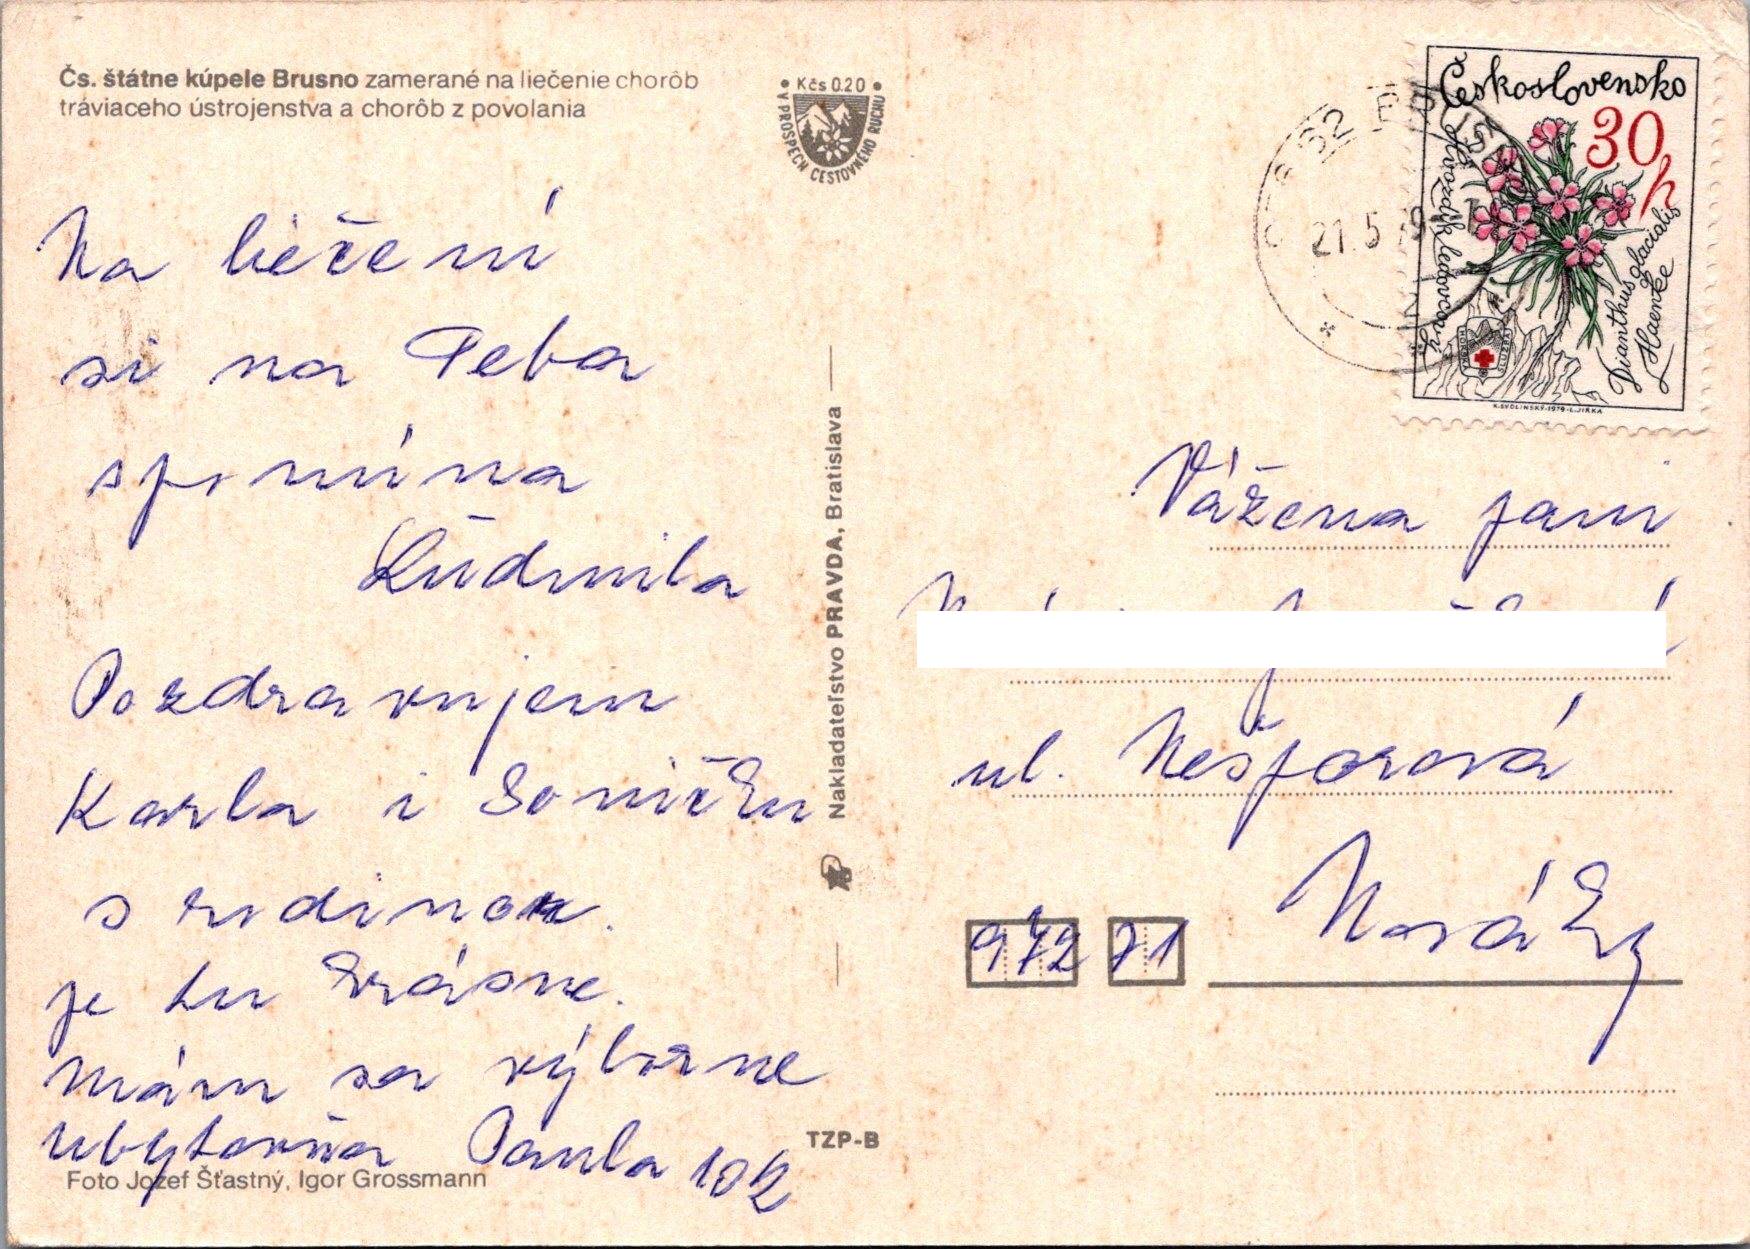 Čs. štátne kúpele Brusno zamerané na liečenie chorôb
tráviaceho ústrojenstva a chorôb z povolania
Kčs 0.20
V PROSPECH CESTOVNÉHO RUCHU
Na liečení
si na Teba
spomína
Ľudmila
Pozdravujem
Karla i Soničku
s rodinou.
je tu krásne.
Mám sa výborne
Ubytovňa Paula 102
Foto Jozef Šťastný, Igor Grossmann
TZP-B
Nakladateľstvo PRAVDA, Bratislava
21.5
Československo
30h
Hvozdík ledovcový
Dianthus glacialis
Haenke
HORSKÁ SLUŽBA
K.SVOLINSKÝ-1979-L.JIRKA
Vážena pani
ul. Nešporová
972 71 Nováky